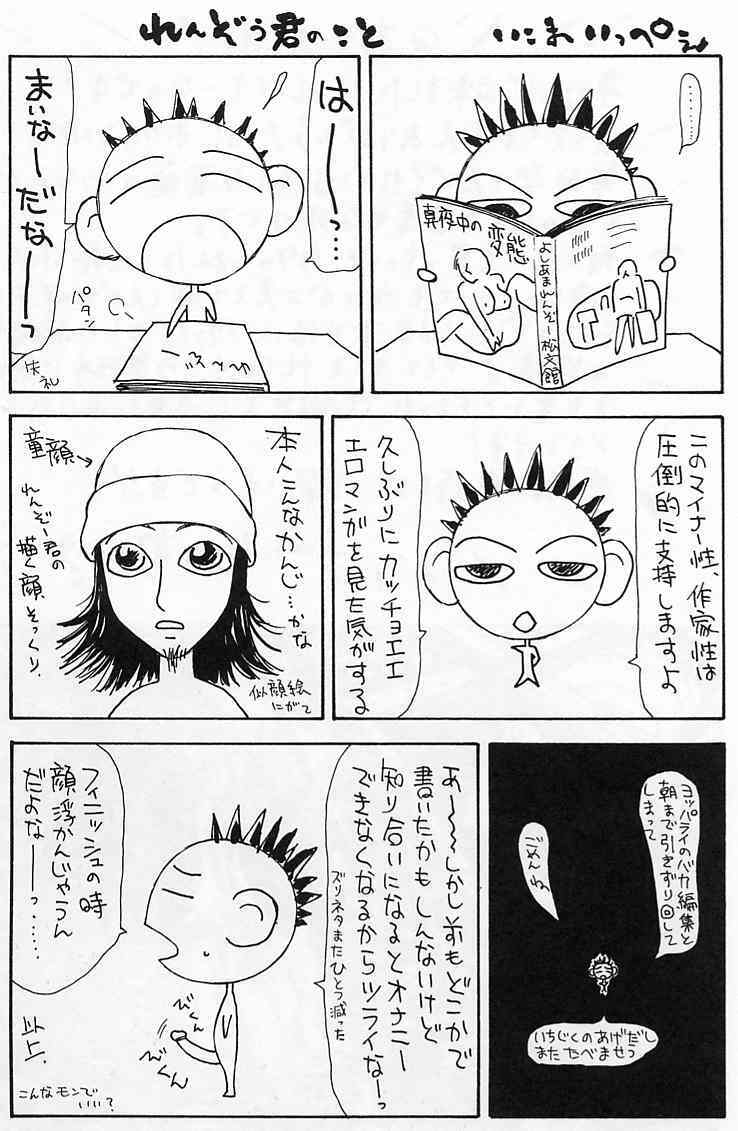 れんぞう君のこと
いこまいっぺ。
………
真夜中の
変態
よしあまれんぞー
松文館
はーーっ…
まぃなーだなーーっ
パタン
失礼
このマイナー性、作家性は
圧倒的に支持しますよ
久しぶりにカッチョエエ
エロマンガを見た気がする
本人こんなかんじ…かな
童顔→
れんぞー君の
描く顔、そっくり。
似顔絵
にがて
ヨッパライのバカ編集と
朝まで引きずり回して
しまって
ごめんね
いちじくのあげだし
またたべませう
あ〜〜〜しかし前もどこかで
書いたかもしんないけど
知り合いになるとオナニー
できなくなるからツライなーっ
ズリネタまたひとつ減った
フィニッシュの時
顔浮かんじゃうん
だよなーーっ……
びくん
びくん
以上.
こんなモンで
いい？